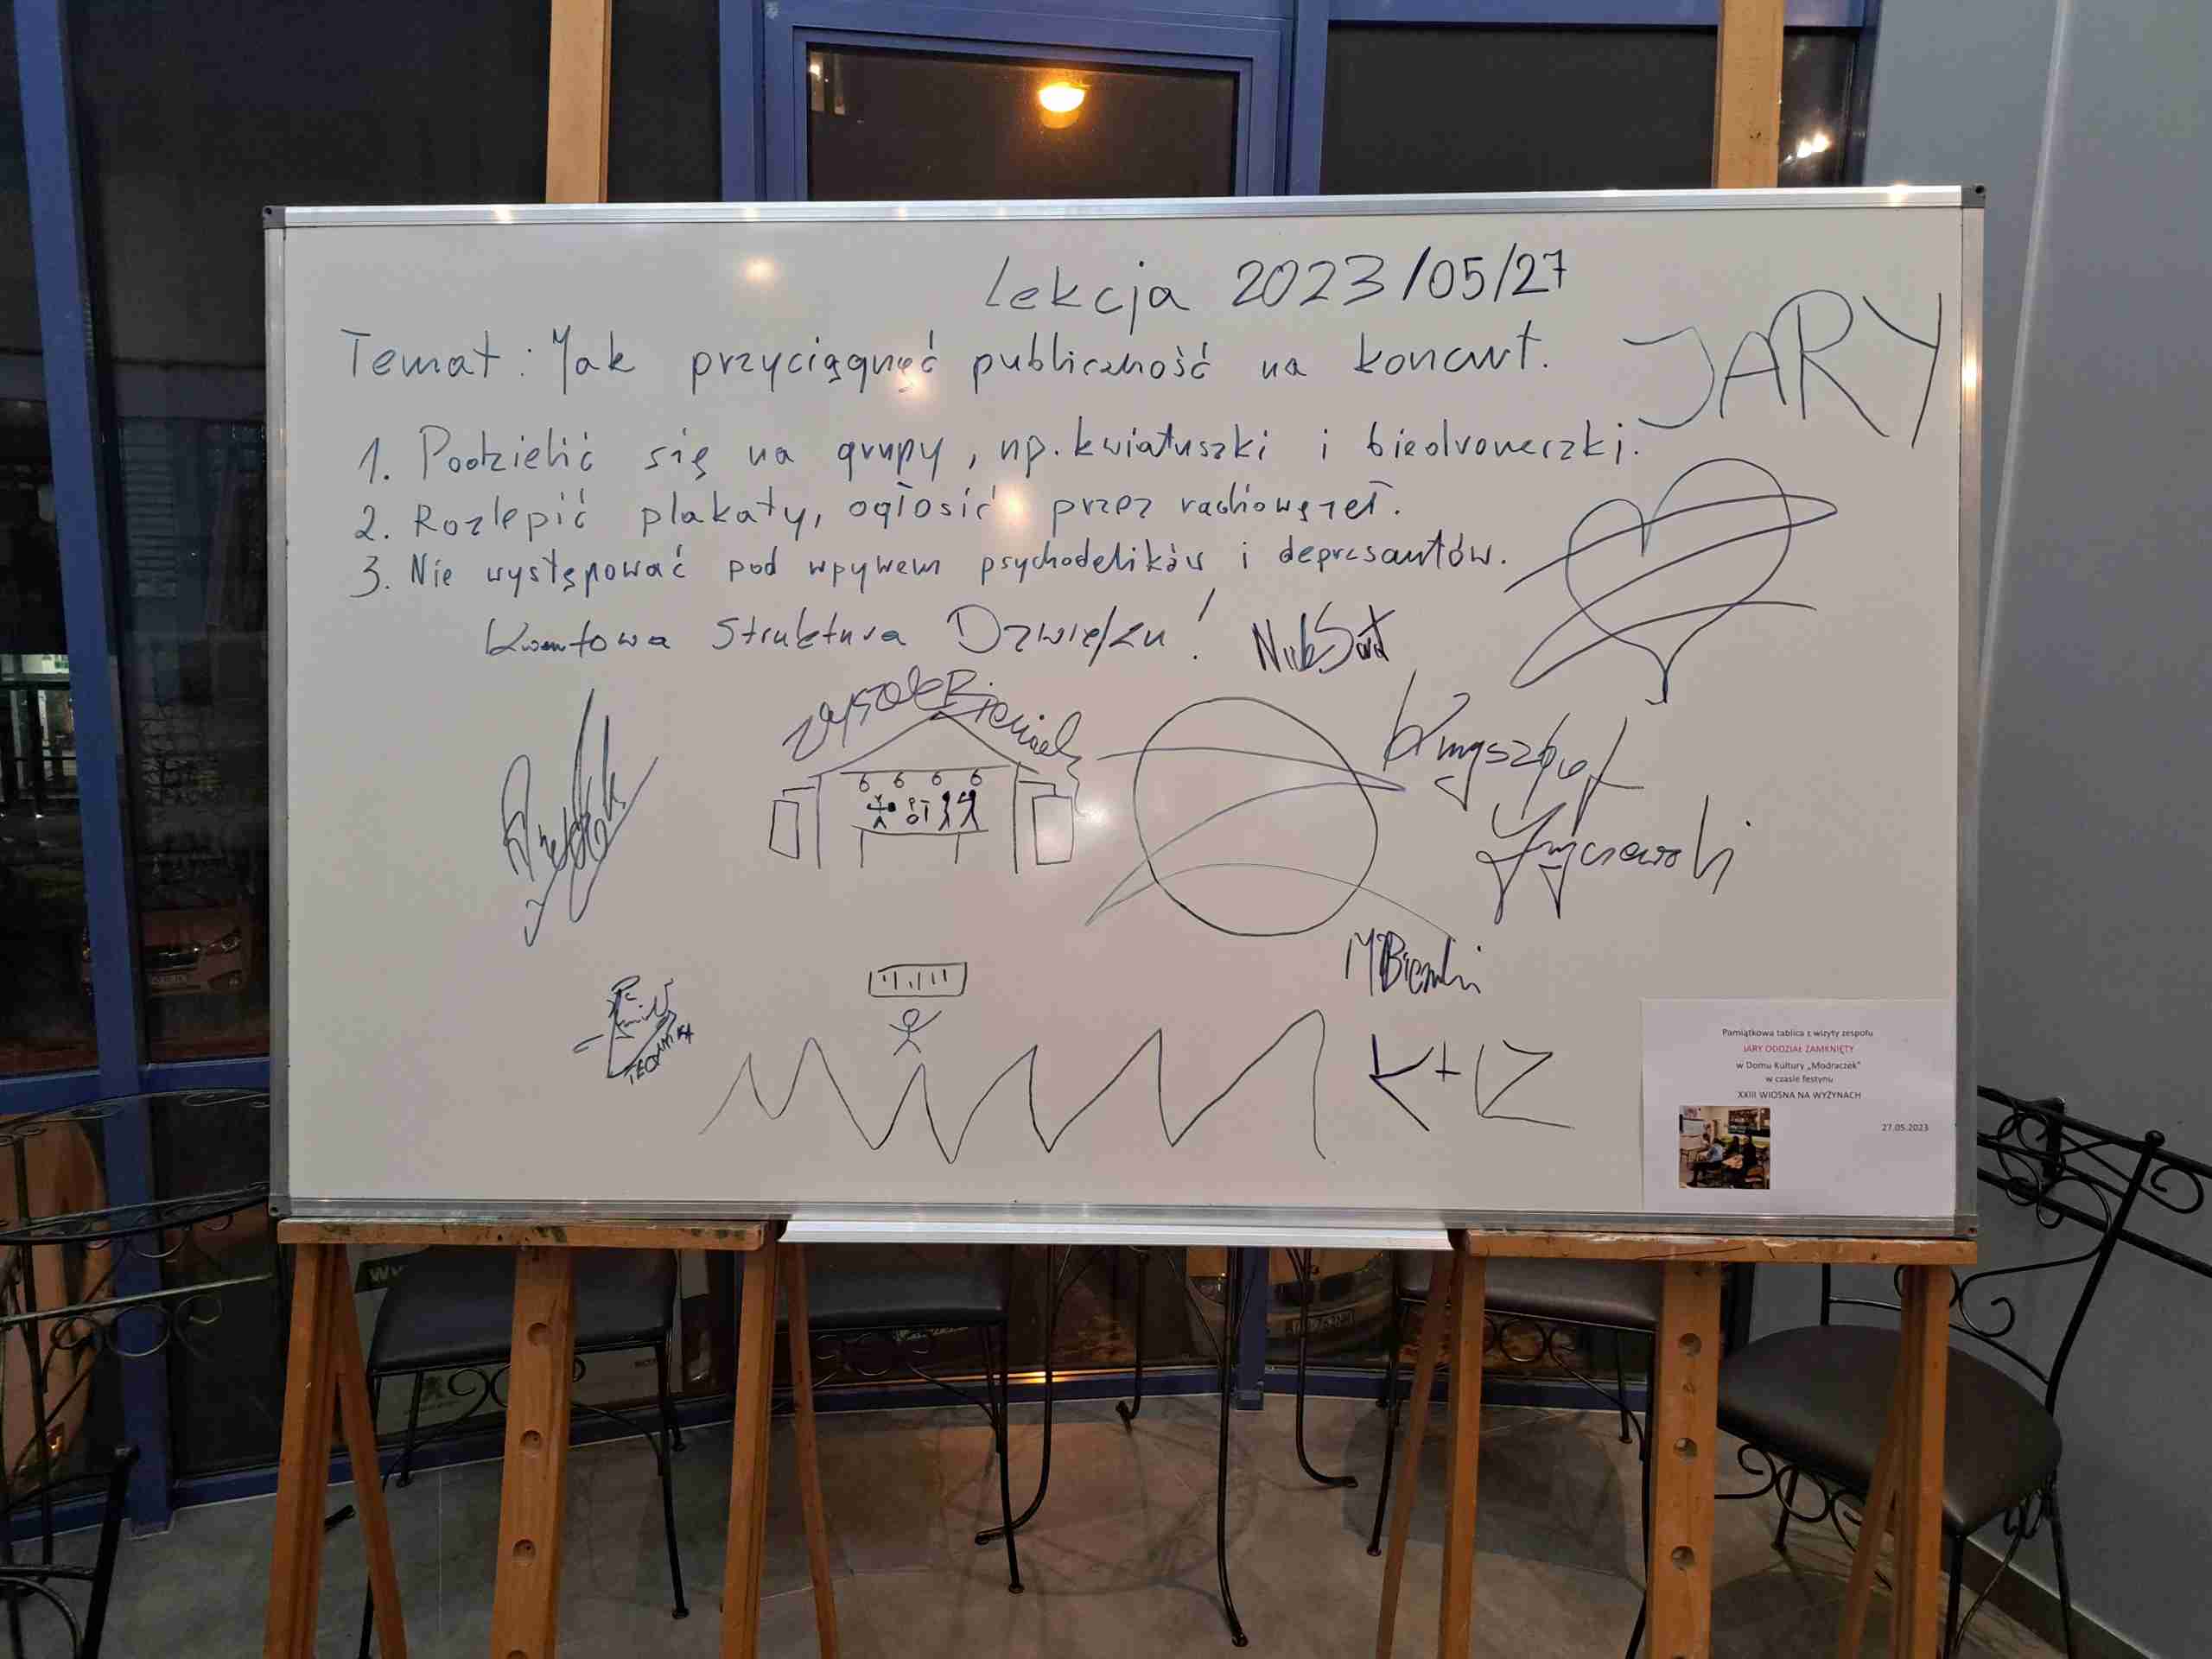 Lekcja 2023/05/27
JARY
Temat: Jak przyciągnąć publiczność na koncert.
1. Podzielić się na grupy, np. kwiatuszki i biedroneczki.
2. Rozlepić plakaty, ogłosić przez radiowęzeł.
3. Nie występować pod wpywem psychodelików i depresantów.
Kwantowa Struktura Dzwięku!
Krzysztof
TECHNIKA
K+Z
Pamiątkowa tablica z wizyty zespołu
JARY ODDZIAŁ ZAMKNIĘTY
w Domu Kultury „Modraczek"
w czasie festynu
XXIII WIOSNA NA WYŻYNACH
27.05.2023